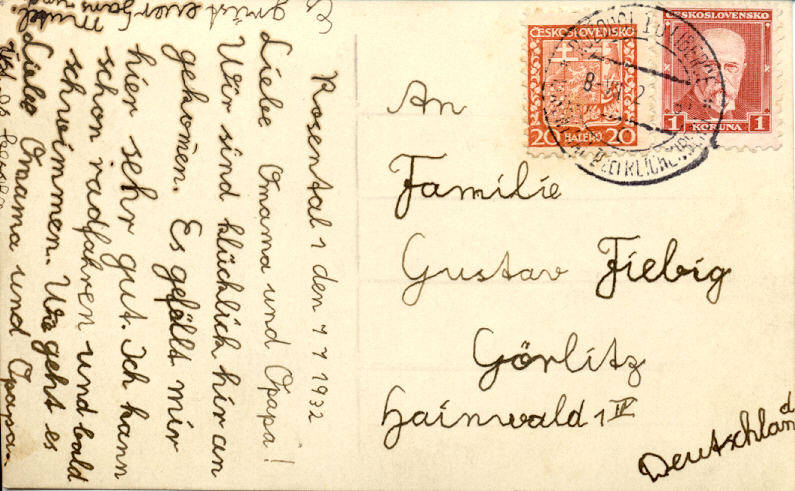 Rosental 1 den 7 7 1932
Liebe Omama und Opapa!
Wir sind klüchlich hir an
gekom̄en. Es gefällt mir
hier sehr gut. Ich kann
schon radfahren und bald
schwimmen. Wie geht es
Liebe Omama und Opapa.
grüsst euer Hans
ČESKOSLOVENSKO
20 HALÉŘŮ 20
ČESKOSLOVENSKO
1 KORUNA 1
An
Familie
Gustav Fiebig
Görlitz
Hainwald 1 IV
Deutschland